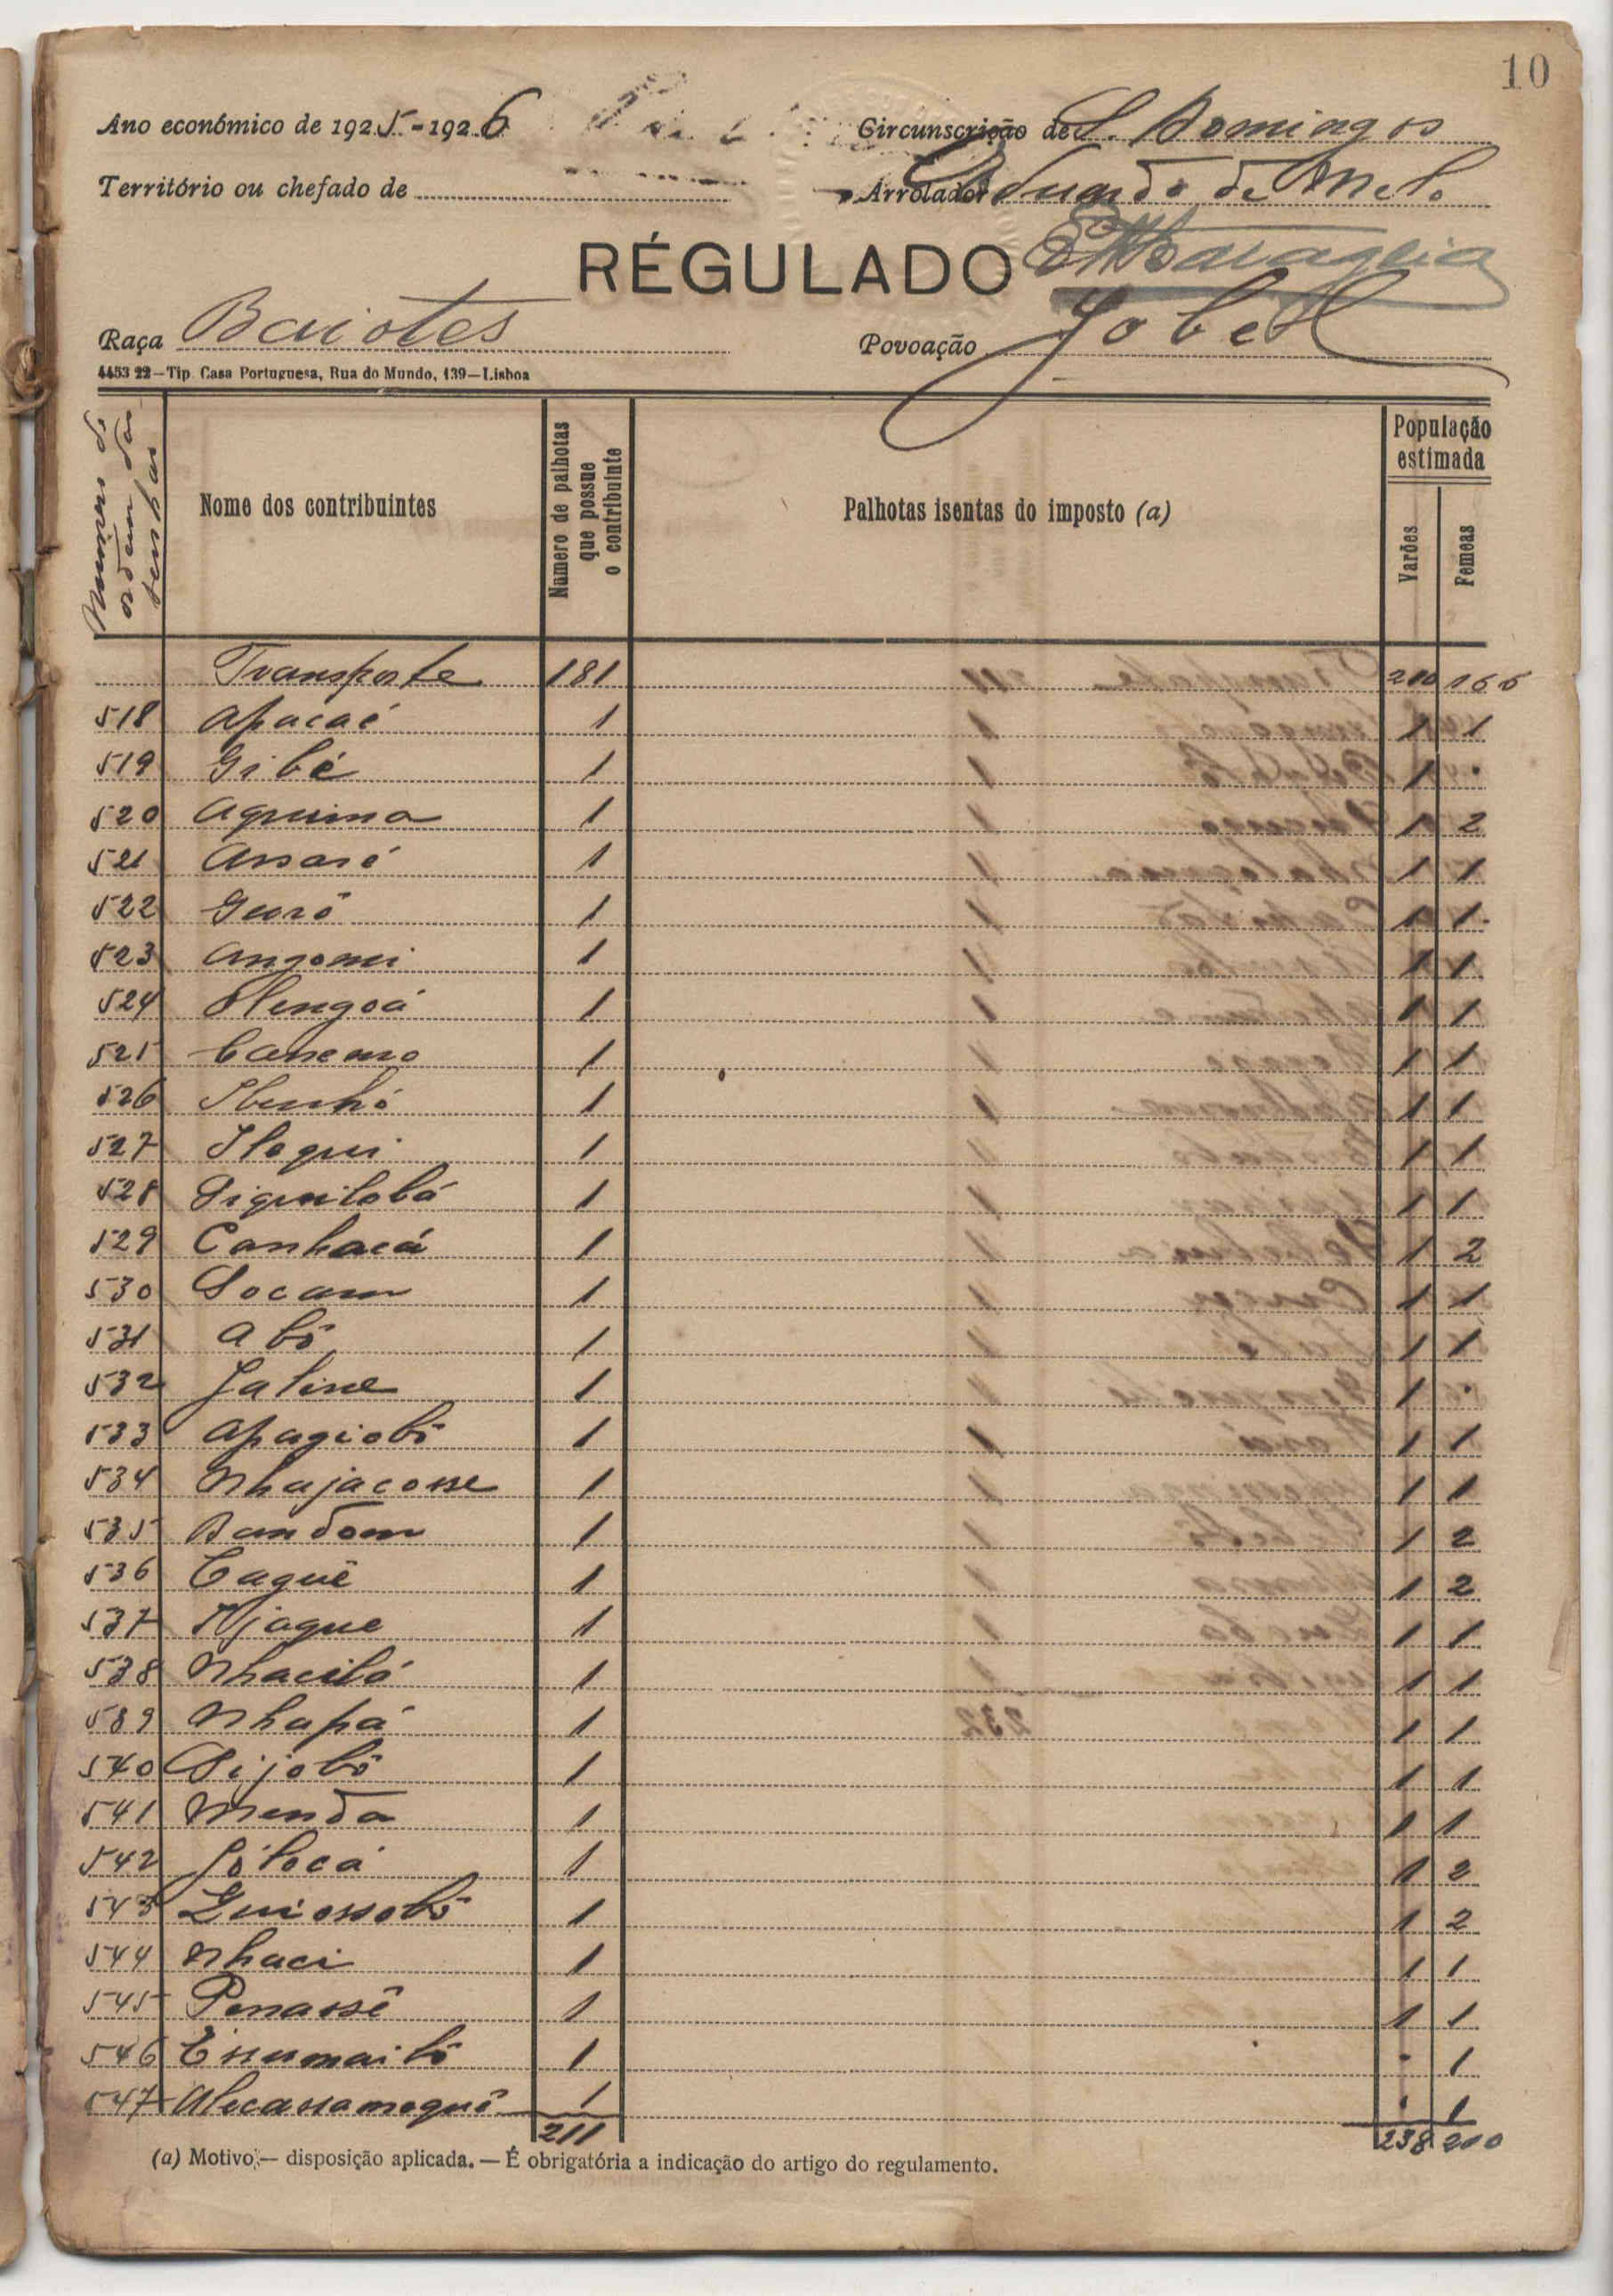 10
Ano económico de 1925-1926 Circunscrição de S. Domingos
Território ou chefado de Arrolador Eduardo de Melo
RÉGULADO
Raça Baiotes Povoação Jobel
4453 22—Tip. Casa Portuguesa, Rua do Mundo, 139—Lisboa
Numero d' ordem das senhas
Nome dos contribuintes
Número de palhotas que possue o contribuinte
Palhotas isentas do imposto (a)
População estimada
Varões
Femeas
Transporte 181 210 166
518 Apacaé 1 1 1
519 Gibé 1 1 .
520 Aquima 1 1 2
521 Assaré 1 1 1
522 Geurô 1 1 1
523 Angomi 1 1 1
524 Olengoá 1 1 1
525 Canemo 1 1 1
526 Ibenhó 1 1 1
527 Iloqui 1 1 1
528 Siquilobá 1 1 1
529 Canhacá 1 1 2
530 Socam 1 1 1
531 Abô 1 1 1
532 Jaline 1 1 .
533 Apagiobô 1 1 1
534 Nhajacosse 1 1 1
535 Bandom 1 1 2
536 Caguê 1 1 2
537 Njaque 1 1 1
538 Nhacibó 1 1 1
539 Nhapá 1 1 1
540 Sijobô 1 1 1
541 Menda 1 1 1
542 Jólocá 1 1 2
543 Guiossobô 1 1 2
544 Nhaci 1 1 1
545 Penassê 1 1 1
546 Essumaibô 1 - 1
547 Alecassamoquê 1 . 1
211 238 200
(a) Motivo — disposição aplicada. — É obrigatória a indicação do artigo do regulamento.